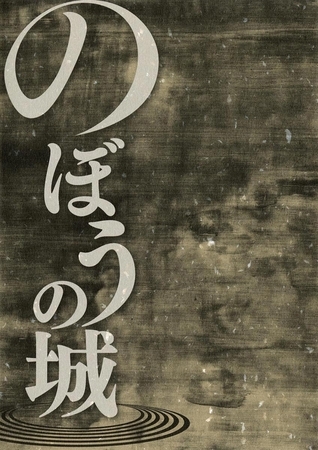 のぼうの城